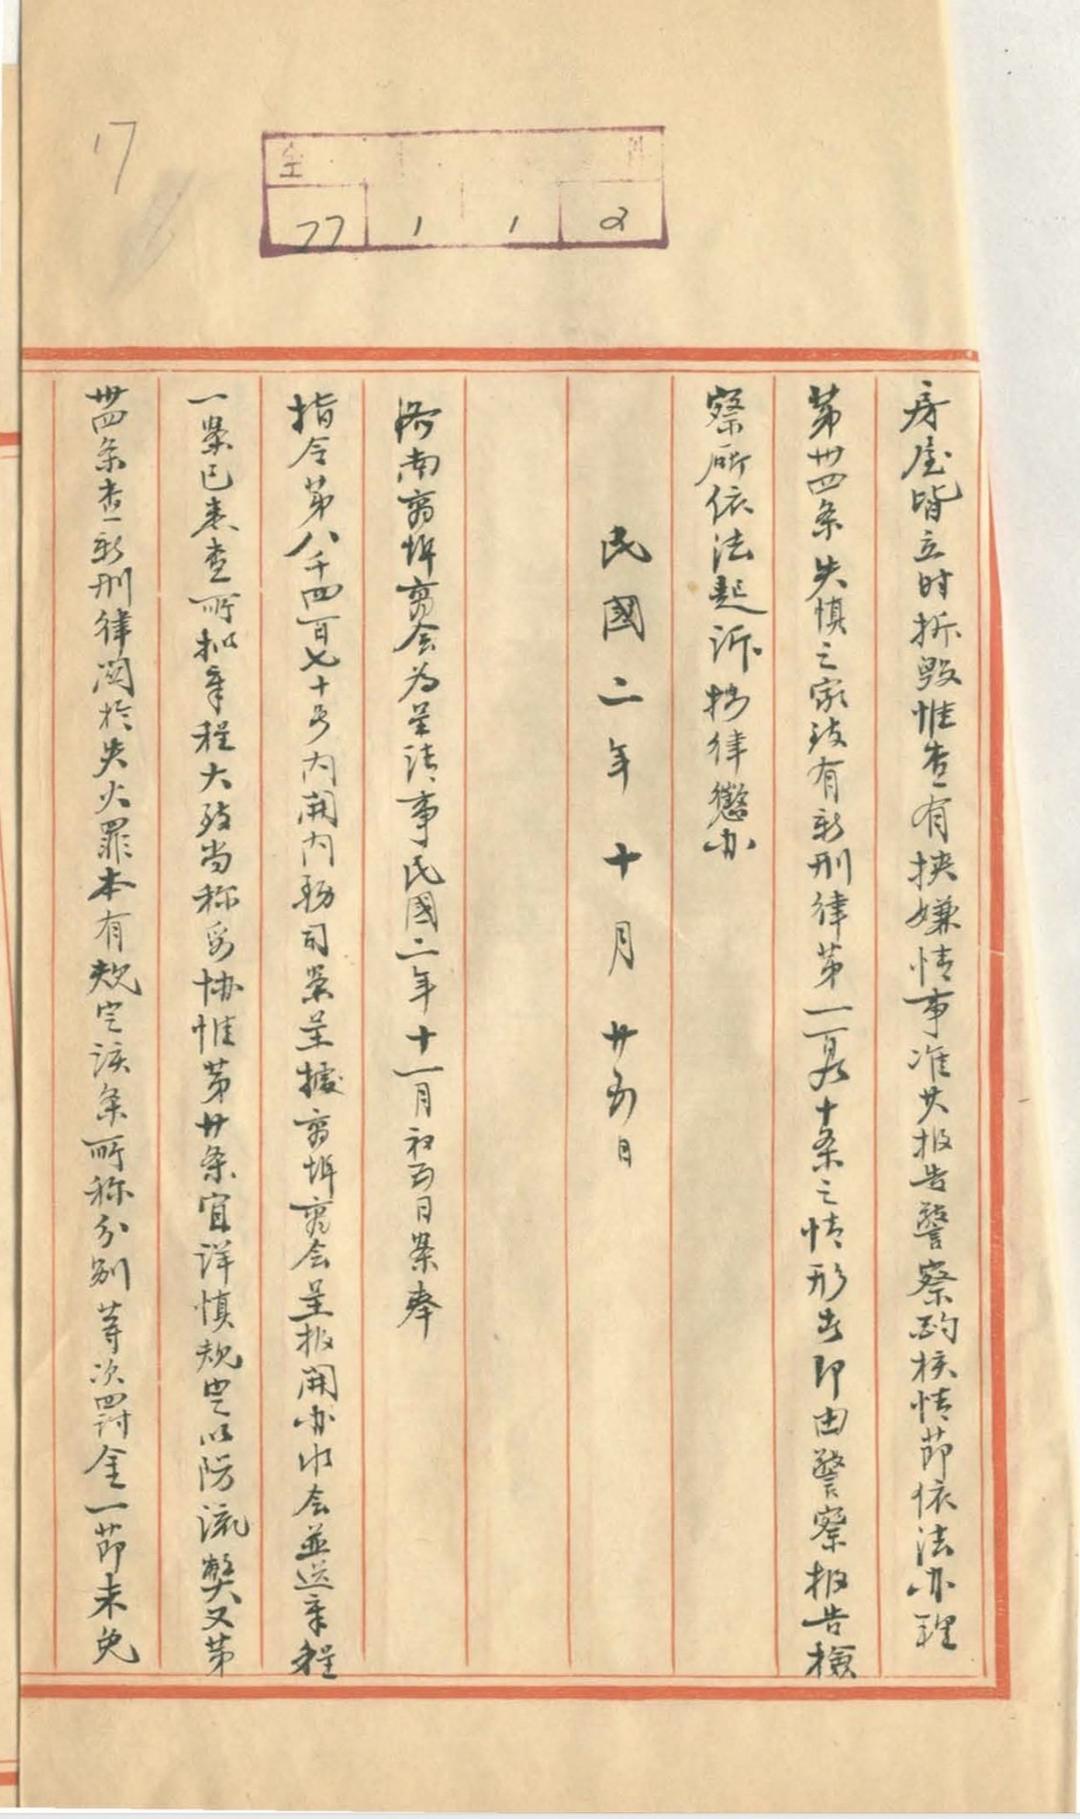 17
全
77 1 1 2
房屋皆立时拆毁惟查有挟嫌情事准其报告警察酌核情节依法办理
第卅四条失慎之家致有新刑律第一百八十条之情形者即由警察报告檢
察所依法起诉按律懲办
民國二年十月廿五日
济南商埠商会为呈请事民國二年十一月初五日案奉
指令第八千四百七十号内開内务司案呈據商埠商会呈报開办水会並送章程
一案已悉查所拟章程大致尚称妥协惟第廿条宜详慎规定以防流弊又第
卅四条查新刑律関於失火罪本有规定该条所称分别等次罚金一节未免